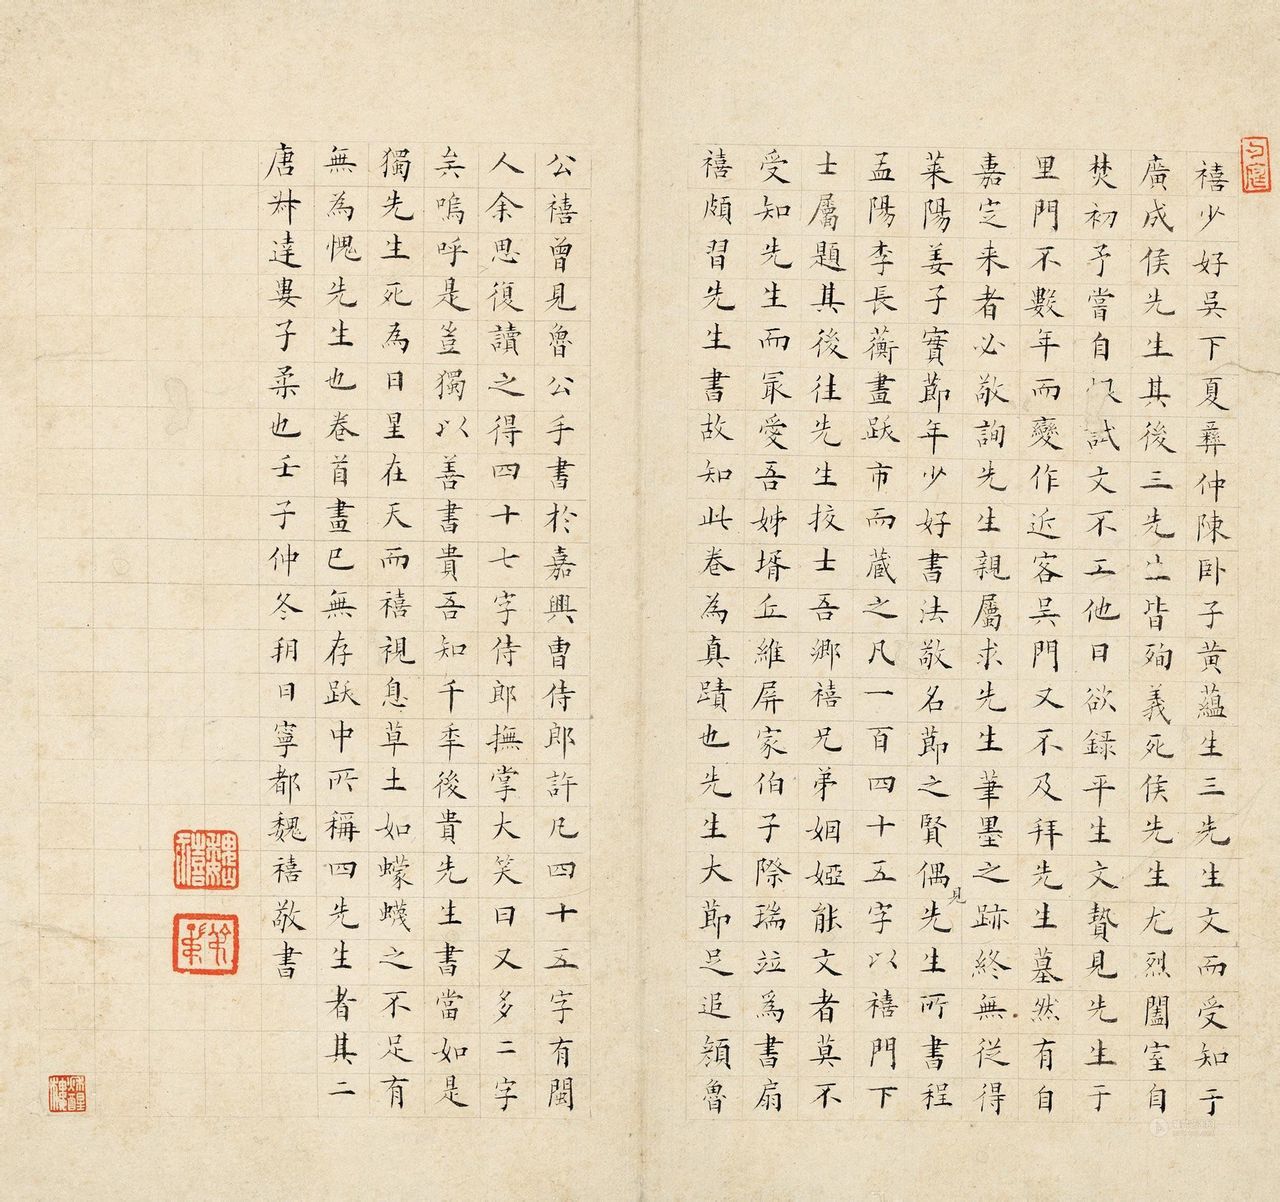 禧少好吳下夏彝仲陳臥子黃蘊生三先生文而受知于
廣成侯先生其後三先生皆殉義死侯先生尤烈闔室自
焚初予嘗自 試文不工他日欲錄平生文贄見先生于
里門不數年而變作近客吳門又不及拜先生墓然有自
嘉定来者必敬詢先生親屬求先生筆墨之跡終無從得
萊陽姜子實節年少好書法敬名節之賢偶見先生所書程
孟陽李長蘅畫跋市而藏之凡一百四十五字以禧門下
士屬題其後往先生按士吾鄉禧兄弟姻婭能文者莫不
受知先生而冣愛吾姊壻丘維屏家伯子際瑞竝為書扇
禧頗習先生書故知此卷為真蹟也先生大節足追顏魯
公禧曾見魯公手書於嘉興曹侍郎許凡四十五字有閩
人余思復讀之得四十七字侍郎撫掌大笑曰又多二字
矣嗚呼是豈獨以善書貴吾知千秊後貴先生書當如是
獨先生死為日星在天而禧視息草土如蠓蠛之不足有
無為愧先生也卷首畫已無存跋中所稱四先生者其二
唐叔達婁子柔也壬子仲冬朔日寧都魏禧敬書
魏禧